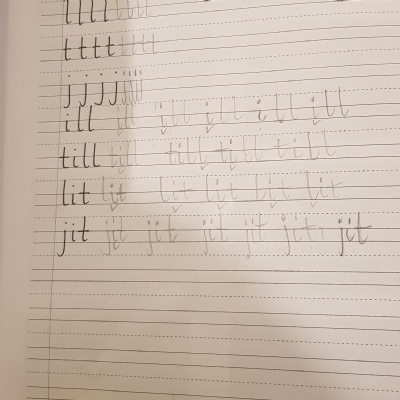 llll llll
tttt tttt
jjjj jjjj
ill ill ill ill ill ill
till till till till till
lit lit lit lit lit lit
jit jit jit jit jit jit jit